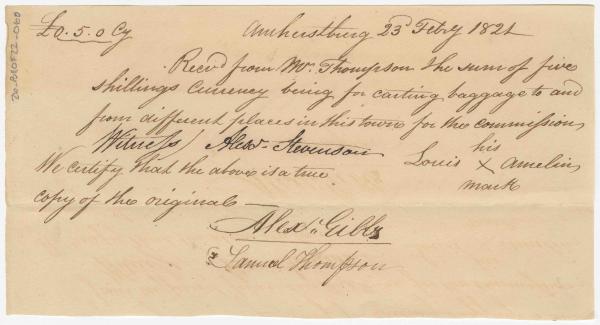 £0.5.0 Cy Amherstburg 23d Feby 1821
Recd from Mr Thompson the sum of five
shillings Currency being for carting baggage to and
from different places in this town for the commission
Witness Alexr Stevenson
his
Louis x Amelin
mark
We certify that the above is a true
copy of the original—
Alexr Gibbs
Samuel Thompson